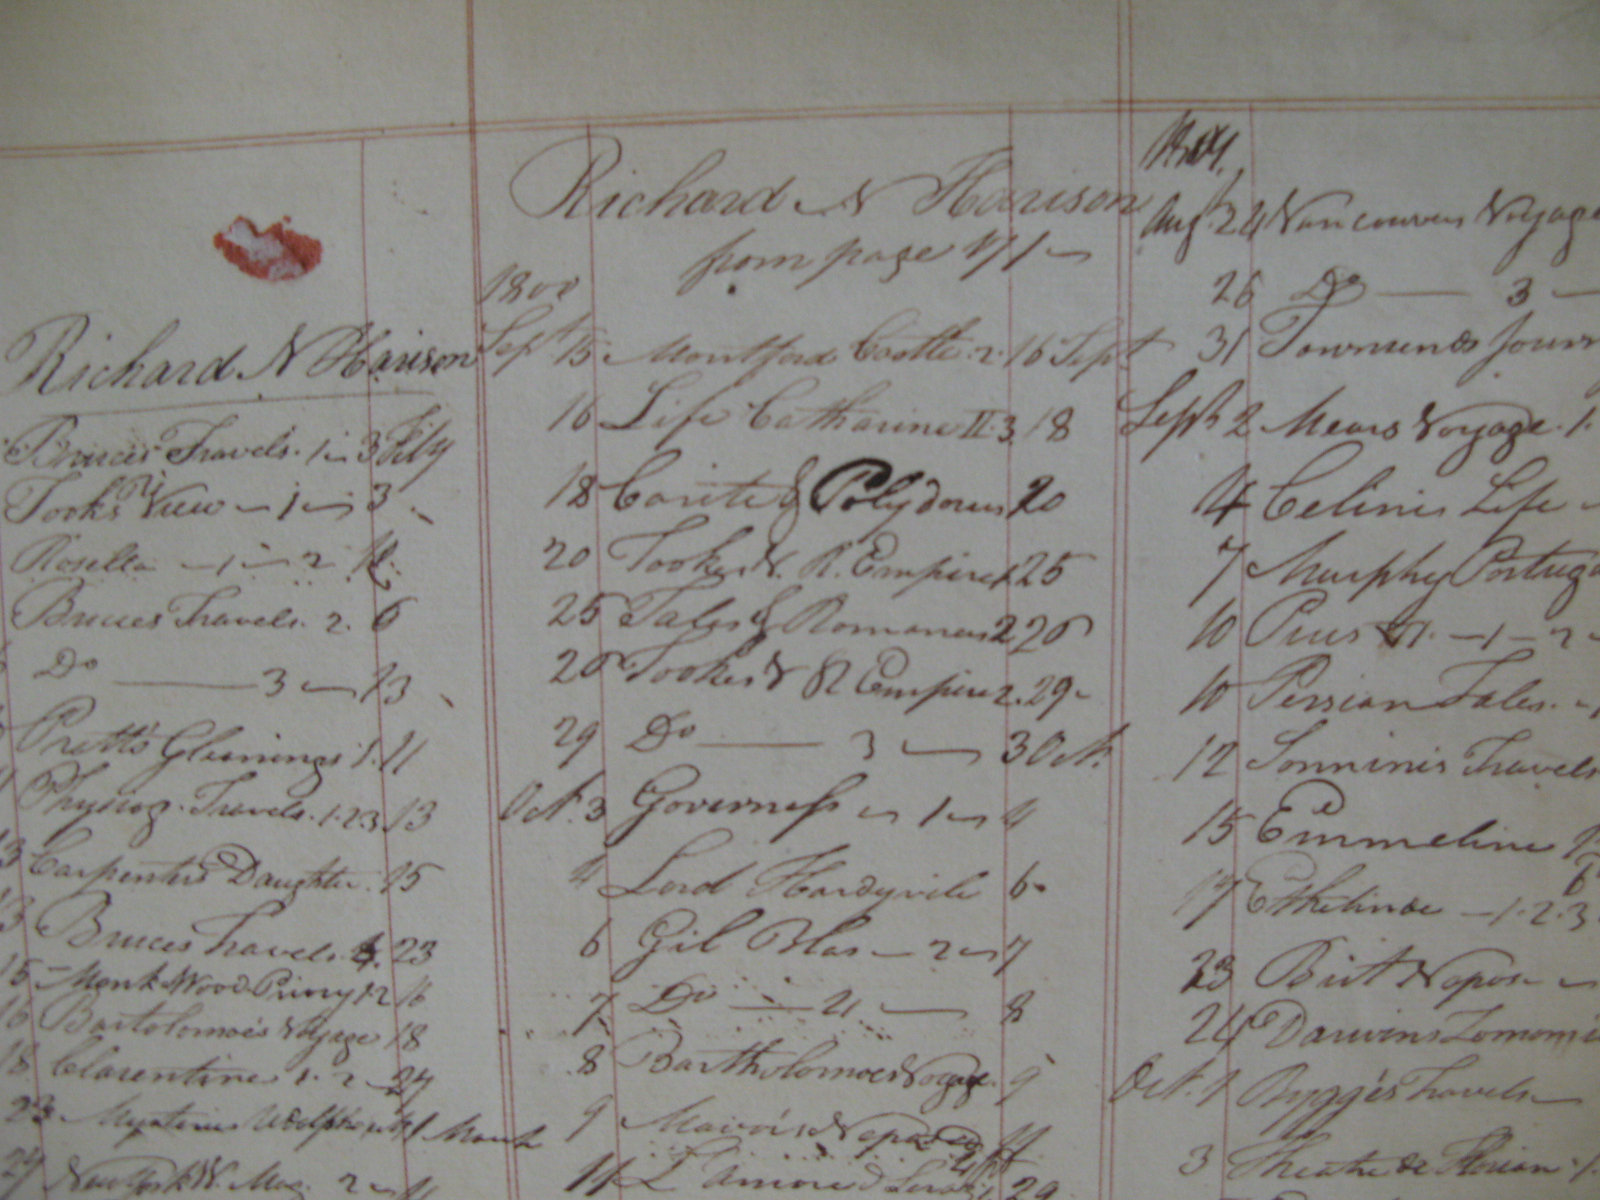 Richard N Harison
Bruces Travels. 1 3 Feby
Tooks View 1 3
Rosella 1 2
Bruces Travels. 2. 6
Do 3 13
Pratts Gleanings 1. 11
Physiog. Travels. 1.2.3. 13
Carpenters Daughter. 15
Bruces Travels. 23
15 Monk Wood Priory 1 2 16
16 Bartolomeis Voyage 18
18 Clarentine 1. 2 24
23 March
24 New York W. Mag. 2
Richard N Harison
from page 171
1800
Sept 15 Montford Castle. 2. 16 Sept
16 Life Catharine II. 3 18
18 Carite & Polydorus 20
20 Tookes V. R. Empire 1 25
25 Tales & Romances 2 26
26 Tookes V R Empire 2. 29
29 Do 3 3 Oct.
Oct. 3 Governess 1 4
4 Lord Hardyvile 6
6 Gil Blas 2 7
7 Do 4 8
8 Bartholomeis Voyage. 9
9
11 L'amore 29
Aug. 24 Vancouvers Voyage
26 Do 3
31 Townsends Journ
Sept 2 Mears Voyage. 1.
4 Celinis Life
7 Murphy Portuga
10 Pius VI. 1 2
10 Persian Tales.
12 Sonninis Travels
15 Emmeline
17 Ethelinde 1.2.3
23
24 Darwins Zoonomi
Oct. 1 Bygges Travels
3 Theatre de Florian 1.